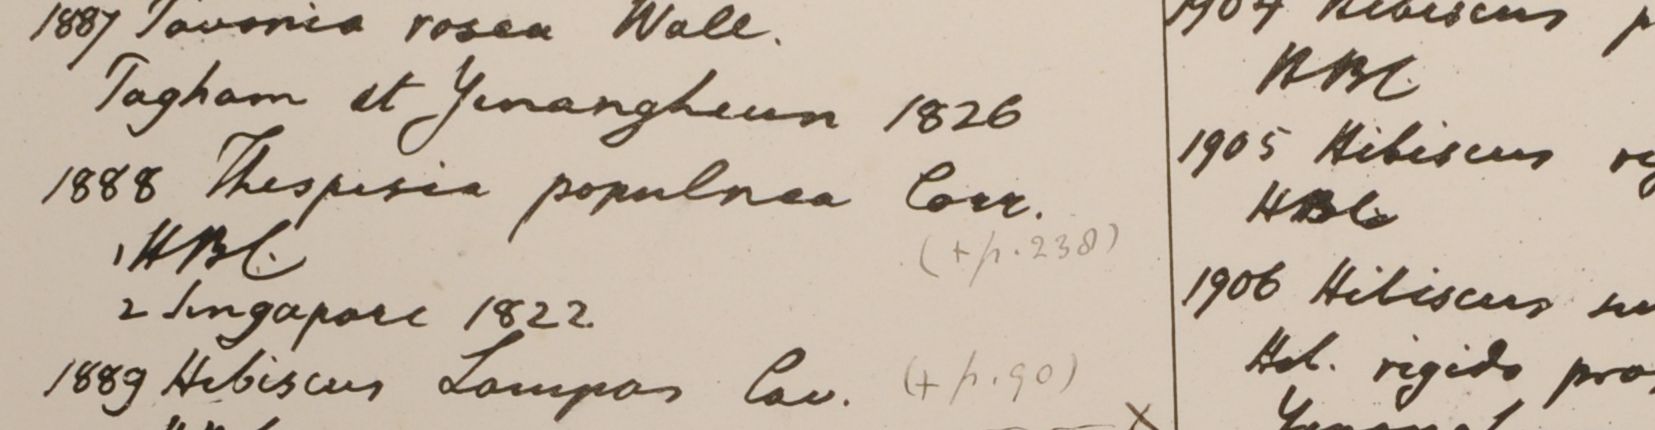 1887 Pavonia rosea Wall.
Tagham et Yenangheun 1826
1888 Thespesia populnea Corr.
1 HBC. (+ p. 238)
2 Singapore 1822
1889 Hibiscus Lampas Cav. (+ p. 90)
HBC
1904 Hibiscus
HBC
1905 Hibiscus
HBC
1906 Hibiscus
Hib. rigido